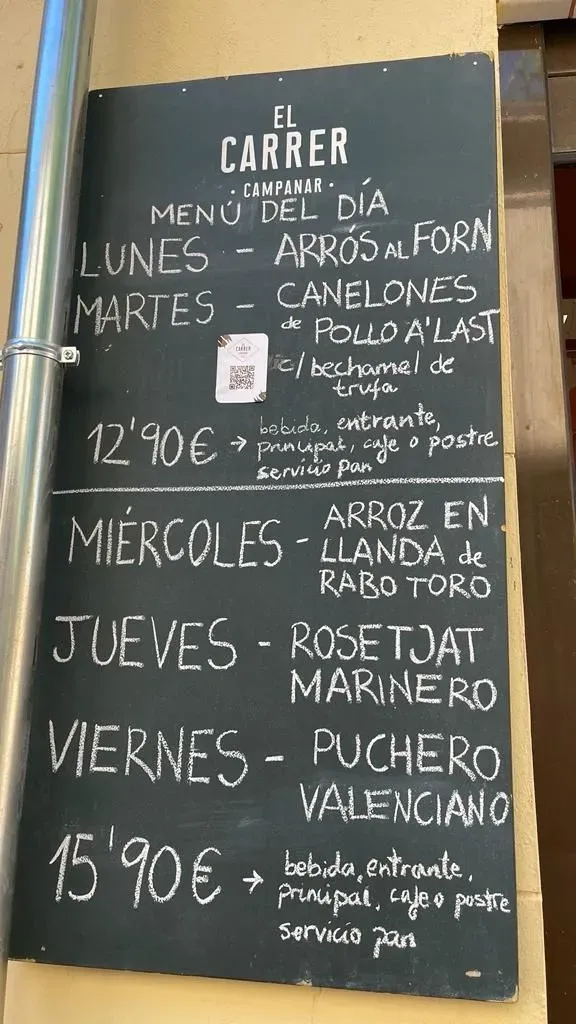 EL
CARRER
· CAMPANAR ·
MENÚ DEL DÍA
LUNES - ARRÓS AL FORN
MARTES - CANELONES
de POLLO A'LAST
c/ bechamel de
trufa
12'90€ → bebida, entrante,
principal, cafe o postre
servicio pan
MIÉRCOLES - ARROZ EN
LLANDA de
RABO TORO
JUEVES - ROSETJAT
MARINERO
VIERNES - PUCHERO
VALENCIANO
15'90€ → bebida, entrante,
principal, cafe o postre
servicio pan